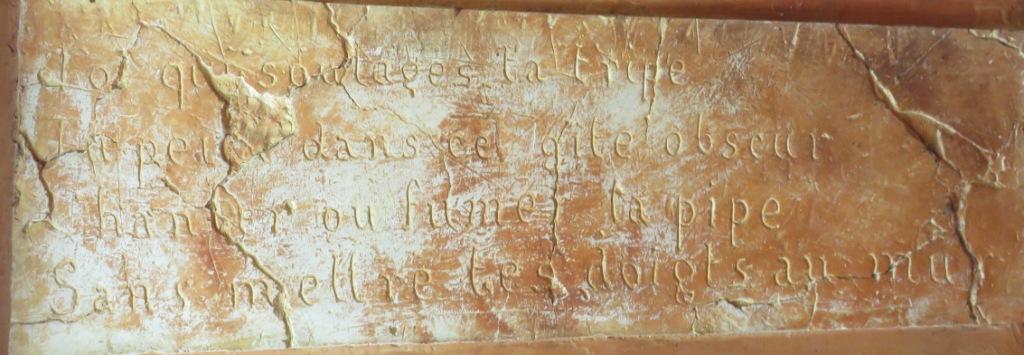 Toi qui soulages ta tripe
Tu peux dans ce gîte obscur
Chanter ou fumer la pipe
Sans mettre tes doigts au mur